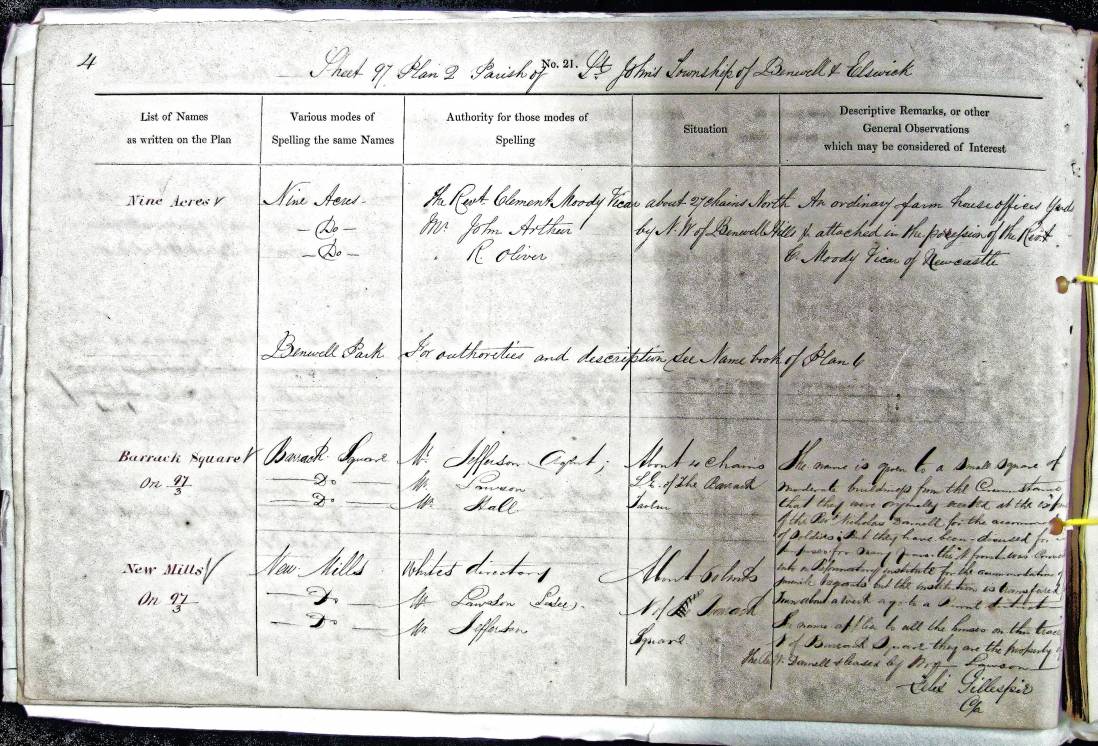 4
Sheet 97 Plan 2 Parish of No. 21. St. John's Township of Benwell & Elswick
List of Names
as written on the Plan
Various modes of
Spelling the same Names
Authority for those modes of
Spelling
Situation
Descriptive Remarks, or other
General Observations
which may be considered of Interest
Nine Acres
Nine Acres
Do
Do
The Revt. Clement Moody Vicar
Mr. John Arthur
R. Oliver
about 27 chains North
by N.W of Benwell Hills
An ordinary farm house offices Yards
& attached in the possession of the Revt.
C. Moody Vicar of Newcastle
Benwell Park For authorities and description see Name book of Plan 6
Barrack Square
On 97/3
Barrack Square
Do
Do
Mr. Jefferson Agent;
Mr. Lawson
Mr. Hall
About 4 Chains
S.E. of The Barrack
The name is given to a Small Square of
moderate buildings from the Circumstance
that they were originally erected at the
of the Revd. Nicholas Darnell for the
of Soldiers; but they have been disused for
for many years. the
into a Reformatory institute for the accommodation of
but the institution is transferred
about a week ago to a
New Mills
On 97/3
New Mills
Do
Do
Whites directory
Mr. Lawson
Mr. Jefferson
About
N of Barrack
Square
name applies to all the houses on this
N of Barrack Square they are the property
Darnell & leased by Lawson
Felix Gillespie